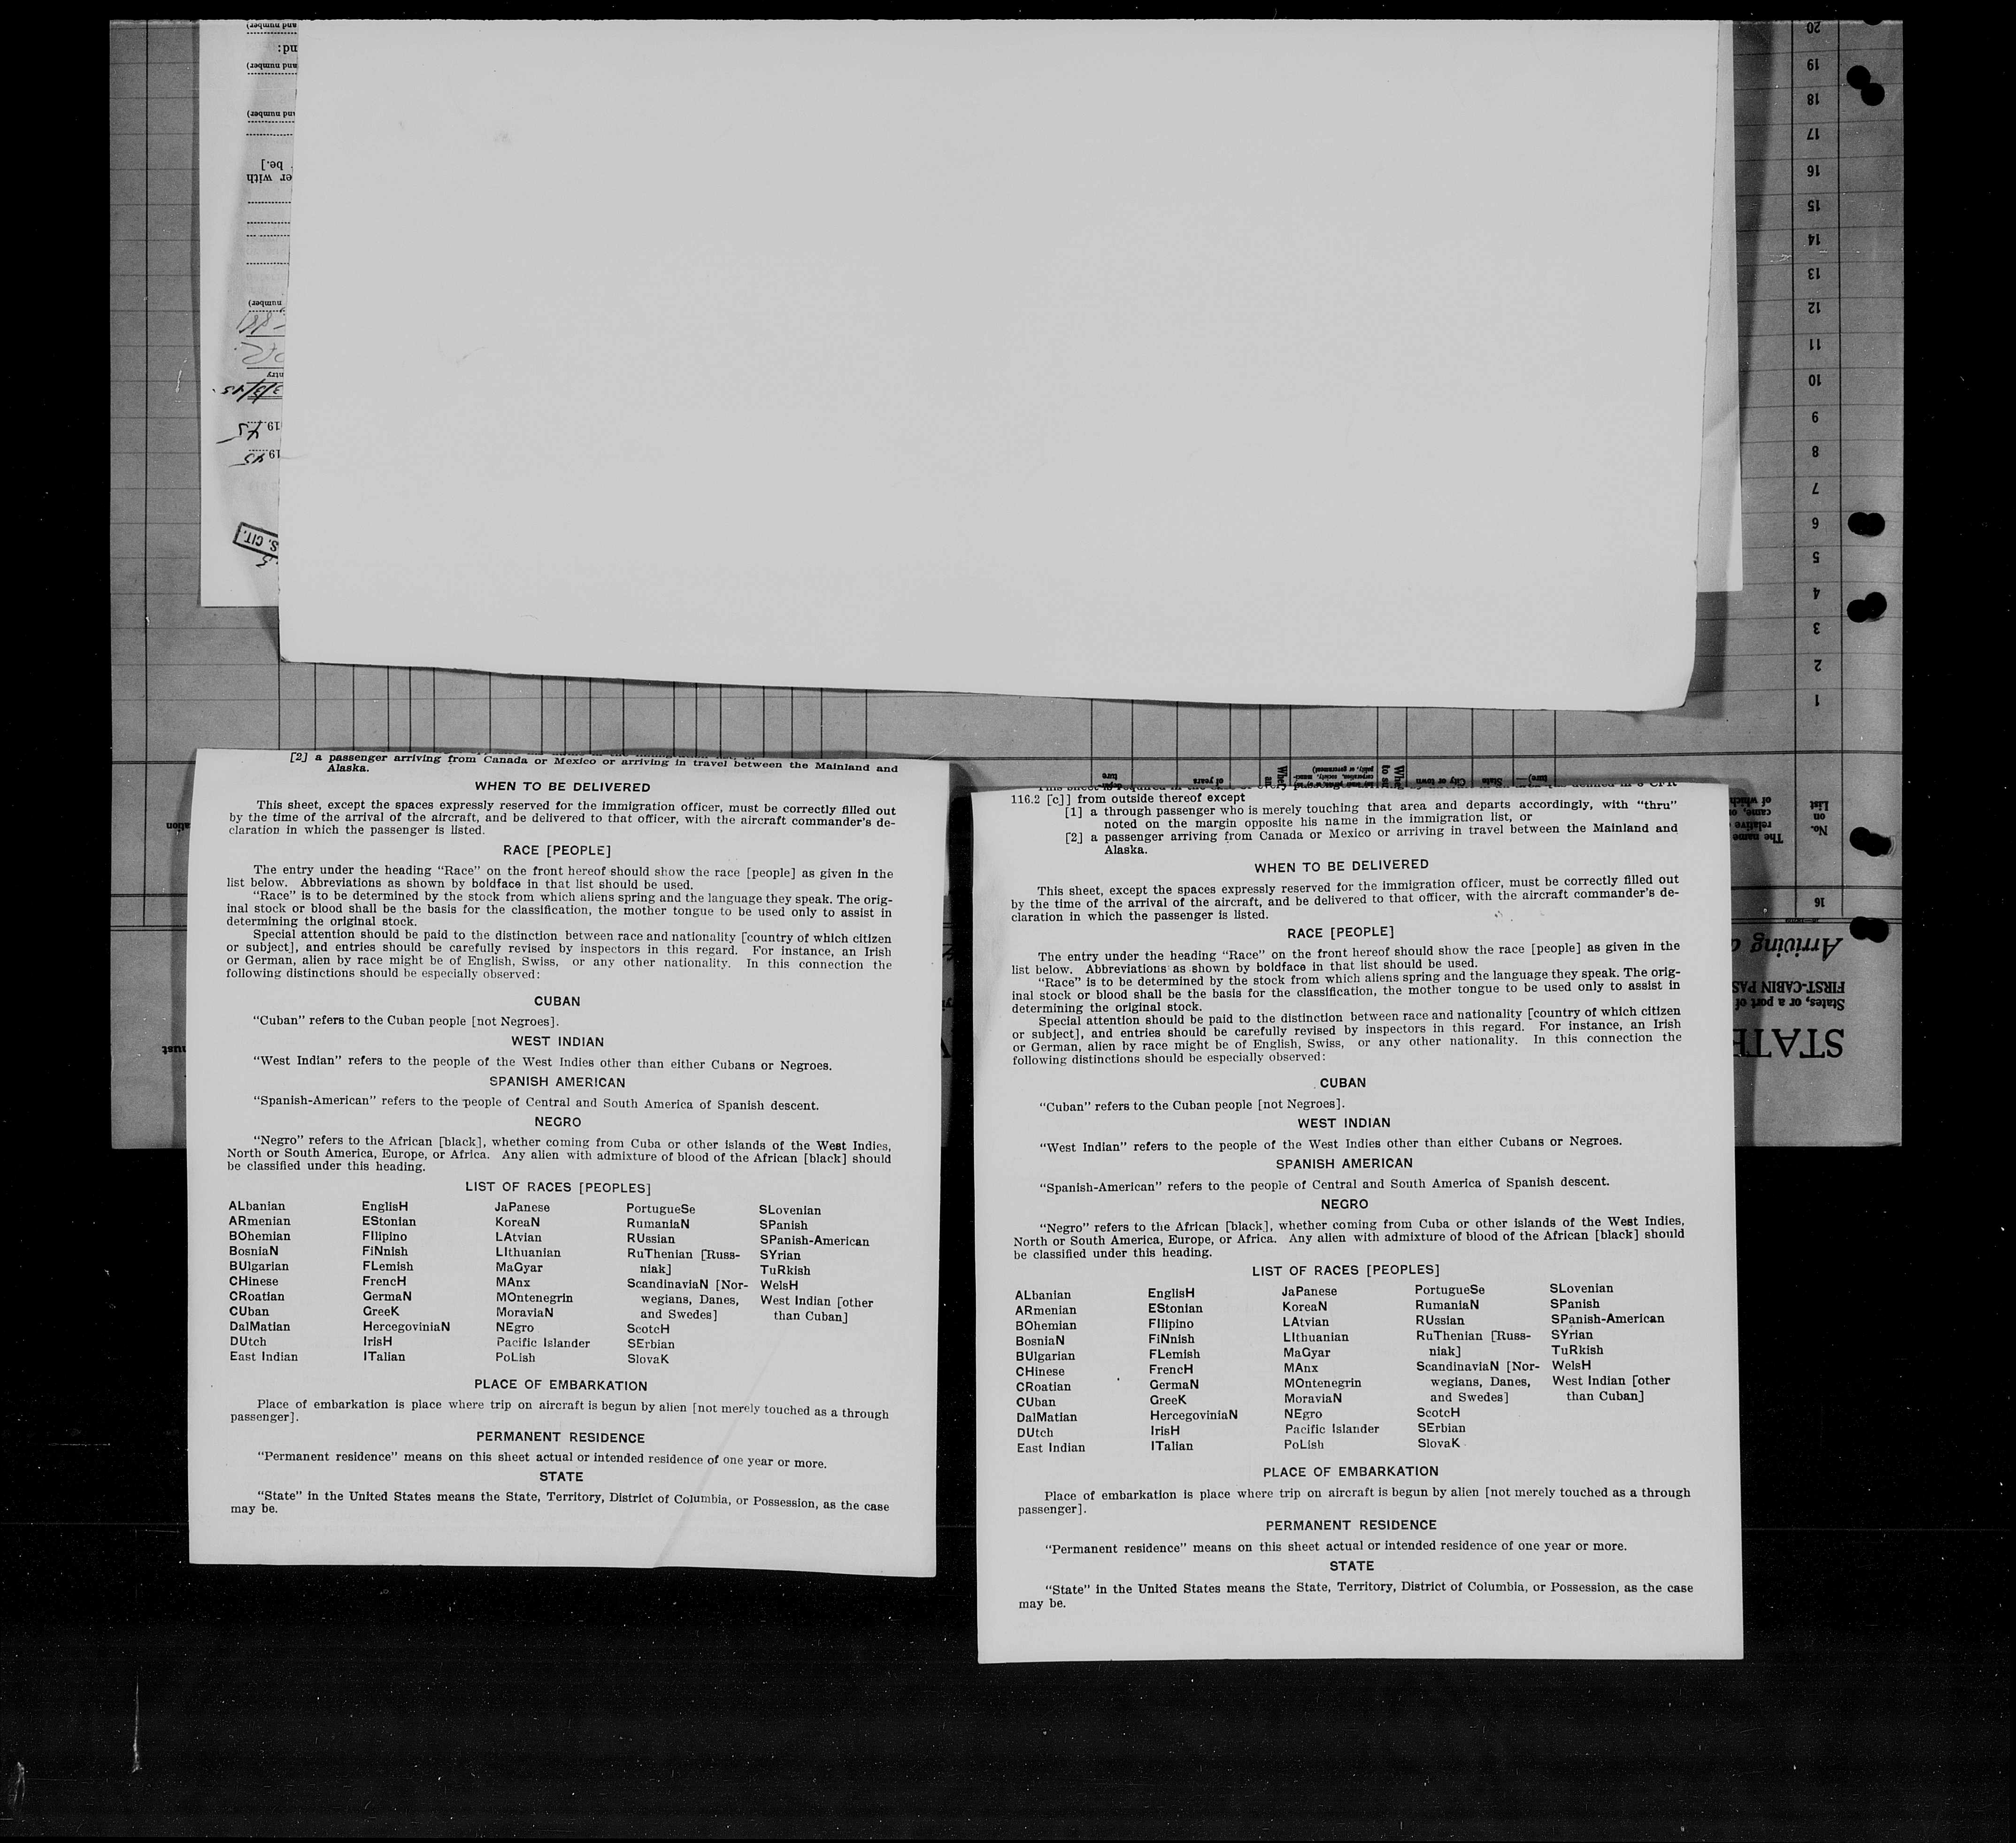 and number)
nd:
and number)
and number)
be.]
er with
number)
ntry
3/3/45
19 45
19 45
S. CIT.
20
19
18
17
16
15
14
13
12
11
10
9
8
7
6
5
4
3
2
1
No.
on
List
The name
relative
came, or
of which
16
Arriving
FIRST-CABIN PAS
States, or a port of
STATE
ture
of years
City or town
State
ture)—
[2] a passenger arriving from Canada or Mexico or arriving in travel between the Mainland and
Alaska.
WHEN TO BE DELIVERED
This sheet, except the spaces expressly reserved for the immigration officer, must be correctly filled out
by the time of the arrival of the aircraft, and be delivered to that officer, with the aircraft commander's de-
claration in which the passenger is listed.
RACE [PEOPLE]
The entry under the heading "Race" on the front hereof should show the race [people] as given in the
list below. Abbreviations as shown by boldface in that list should be used.
"Race" is to be determined by the stock from which aliens spring and the language they speak. The orig-
inal stock or blood shall be the basis for the classification, the mother tongue to be used only to assist in
determining the original stock.
Special attention should be paid to the distinction between race and nationality [country of which citizen
or subject], and entries should be carefully revised by inspectors in this regard. For instance, an Irish
or German, alien by race might be of English, Swiss, or any other nationality. In this connection the
following distinctions should be especially observed:
CUBAN
"Cuban" refers to the Cuban people [not Negroes].
WEST INDIAN
"West Indian" refers to the people of the West Indies other than either Cubans or Negroes.
SPANISH AMERICAN
"Spanish-American" refers to the people of Central and South America of Spanish descent.
NEGRO
"Negro" refers to the African [black], whether coming from Cuba or other islands of the West Indies,
North or South America, Europe, or Africa. Any alien with admixture of blood of the African [black] should
be classified under this heading.
LIST OF RACES [PEOPLES]
ALbanian
ARmenian
BOhemian
BosniaN
BUlgarian
CHinese
CRoatian
CUban
DalMatian
DUtch
East Indian
EnglisH
EStonian
FIlipino
FiNnish
FLemish
FrencH
GermaN
GreeK
HercegoviniaN
IrisH
ITalian
JaPanese
KoreaN
LAtvian
LIthuanian
MaGyar
MAnx
MOntenegrin
MoraviaN
NEgro
Pacific Islander
PoLish
PortugueSe
RumaniaN
RUssian
RuThenian [Russ-
niak]
ScandinaviaN [Nor-
wegians, Danes,
and Swedes]
ScotcH
SErbian
SlovaK
SLovenian
SPanish
SPanish-American
SYrian
TuRkish
WelsH
West Indian [other
than Cuban]
PLACE OF EMBARKATION
Place of embarkation is place where trip on aircraft is begun by alien [not merely touched as a through
passenger].
PERMANENT RESIDENCE
"Permanent residence" means on this sheet actual or intended residence of one year or more.
STATE
"State" in the United States means the State, Territory, District of Columbia, or Possession, as the case
may be.
116.2 [c]] from outside thereof except
[1] a through passenger who is merely touching that area and departs accordingly, with "thru"
noted on the margin opposite his name in the immigration list, or
[2] a passenger arriving from Canada or Mexico or arriving in travel between the Mainland and
Alaska.
WHEN TO BE DELIVERED
This sheet, except the spaces expressly reserved for the immigration officer, must be correctly filled out
by the time of the arrival of the aircraft, and be delivered to that officer, with the aircraft commander's de-
claration in which the passenger is listed.
RACE [PEOPLE]
The entry under the heading "Race" on the front hereof should show the race [people] as given in the
list below. Abbreviations as shown by boldface in that list should be used.
"Race" is to be determined by the stock from which aliens spring and the language they speak. The orig-
inal stock or blood shall be the basis for the classification, the mother tongue to be used only to assist in
determining the original stock.
Special attention should be paid to the distinction between race and nationality [country of which citizen
or subject], and entries should be carefully revised by inspectors in this regard. For instance, an Irish
or German, alien by race might be of English, Swiss, or any other nationality. In this connection the
following distinctions should be especially observed:
CUBAN
"Cuban" refers to the Cuban people [not Negroes].
WEST INDIAN
"West Indian" refers to the people of the West Indies other than either Cubans or Negroes.
SPANISH AMERICAN
"Spanish-American" refers to the people of Central and South America of Spanish descent.
NEGRO
"Negro" refers to the African [black], whether coming from Cuba or other islands of the West Indies,
North or South America, Europe, or Africa. Any alien with admixture of blood of the African [black] should
be classified under this heading.
LIST OF RACES [PEOPLES]
ALbanian
ARmenian
BOhemian
BosniaN
BUlgarian
CHinese
CRoatian
CUban
DalMatian
DUtch
East Indian
EnglisH
EStonian
FIlipino
FiNnish
FLemish
FrencH
GermaN
GreeK
HercegoviniaN
IrisH
ITalian
JaPanese
KoreaN
LAtvian
LIthuanian
MaGyar
MAnx
MOntenegrin
MoraviaN
NEgro
Pacific Islander
PoLish
PortugueSe
RumaniaN
RUssian
RuThenian [Russ-
niak]
ScandinaviaN [Nor-
wegians, Danes,
and Swedes]
ScotcH
SErbian
SlovaK
SLovenian
SPanish
SPanish-American
SYrian
TuRkish
WelsH
West Indian [other
than Cuban]
PLACE OF EMBARKATION
Place of embarkation is place where trip on aircraft is begun by alien [not merely touched as a through
passenger].
PERMANENT RESIDENCE
"Permanent residence" means on this sheet actual or intended residence of one year or more.
STATE
"State" in the United States means the State, Territory, District of Columbia, or Possession, as the case
may be.